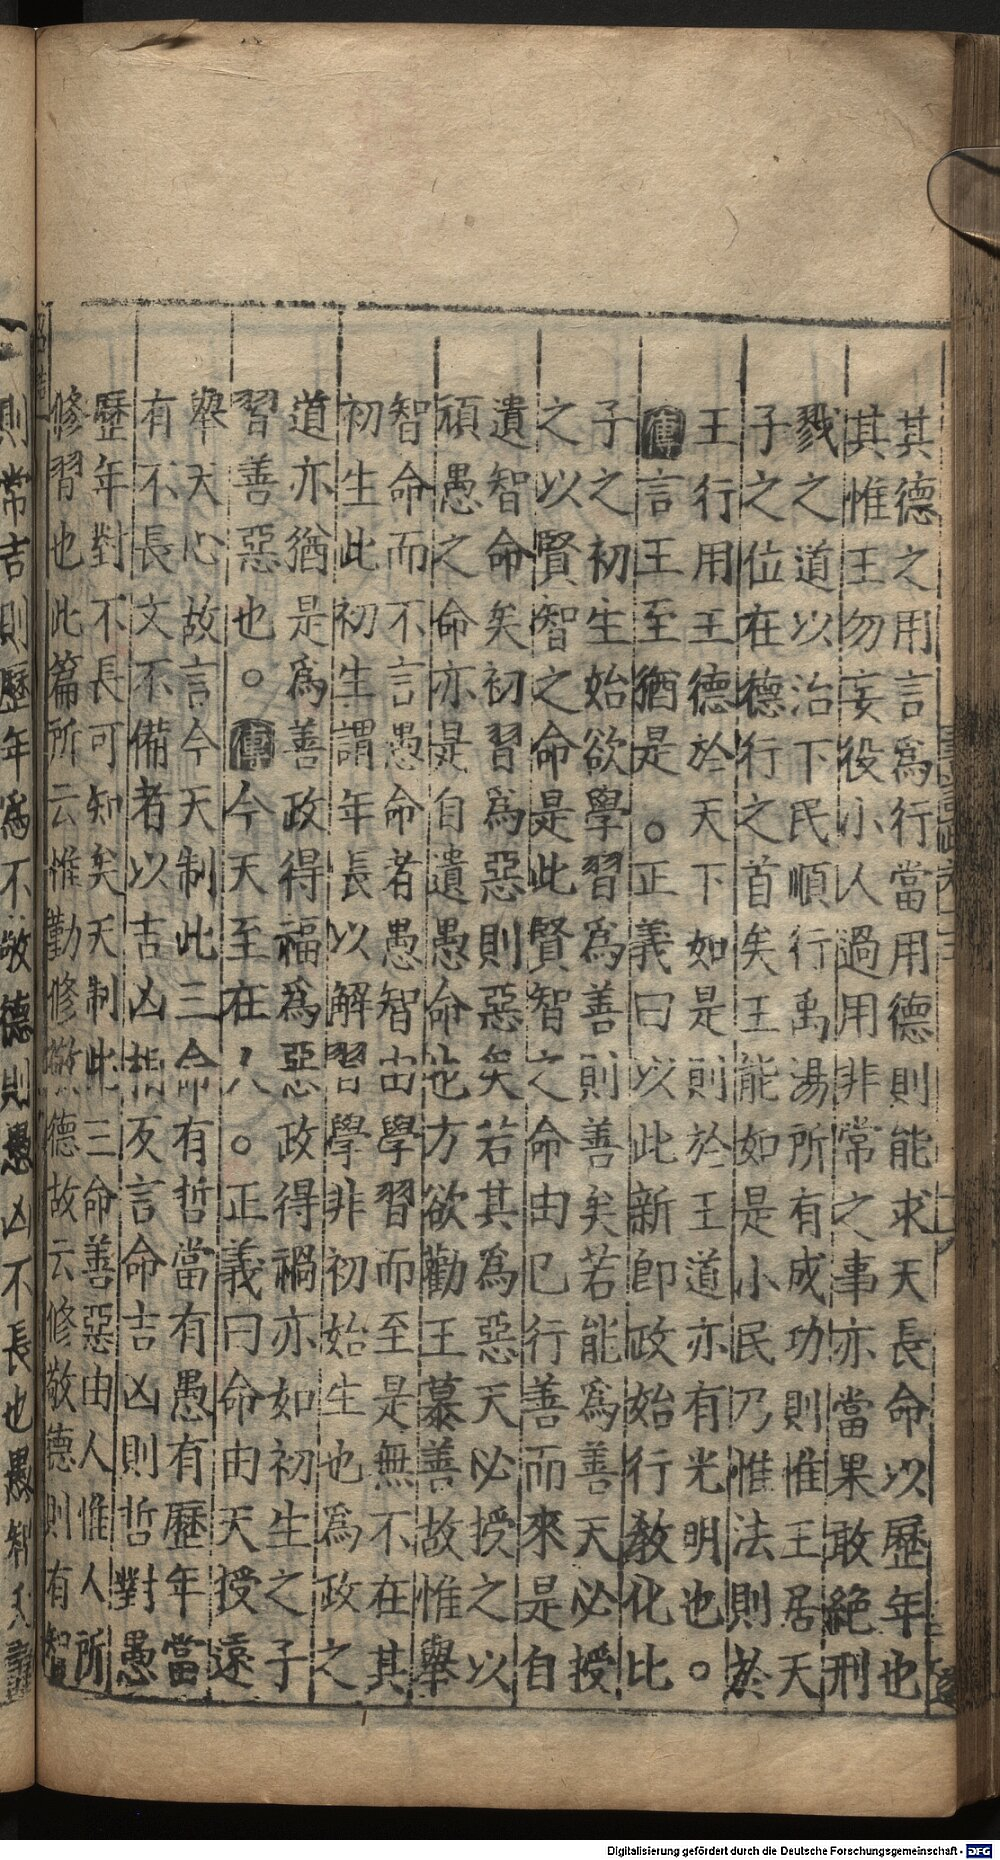 其德之用言爲行當用德則能求天長命以歷年也
其惟王勿妄役小人過用非常之事亦當果敢絶刑
戮之道以治下民順行禹湯所有成功則惟王居天
子之位在德行之首矣王能如是小民乃惟法則於
王行用王德於天下如是則於王道亦有光明也。
傳言王至猶是。正義曰以此新卽政始行教化比
子之初生始欲學習爲善則善矣若能爲善天必授
之以賢智之命是此賢智之命由已行善而來是自
遺智命矣初習爲惡則惡矣若其爲惡天必授之以
頑愚之命亦是自遺愚命也方欲勸王慕善故惟舉
智命而不言愚命者愚智由學習而至是無不在其
初生此初生謂年長以解習學非初始生也爲政之
道亦猶是爲善政得福爲惡政得禍亦如初生之子
習善惡也。傳今天至在人。正義曰命由天授遠
舉天心故言今天制此三命有哲當有愚有歷年當
有不長文不備者以吉凶相反言命吉凶則哲對愚
歷年對不長可知矣天制此三命善惡由人惟人所
修習也此篇所云惟勤修敬德故云修敬德則有智
則常吉則歷年爲不敬德則愚凶不長也愚智夭壽
Digitalisierung gefördert durch die Deutsche Forschungsgemeinschaft - DFG